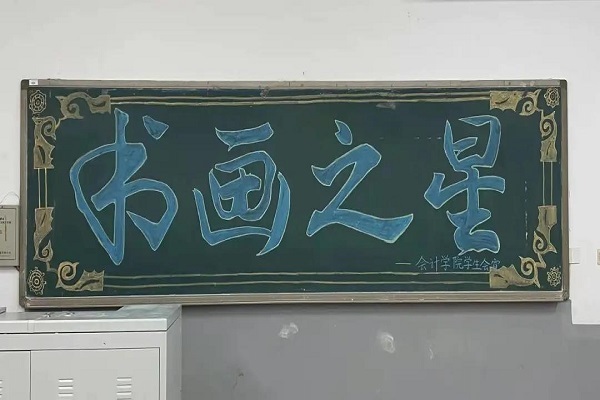 书画之星
—会计学院学生会宣